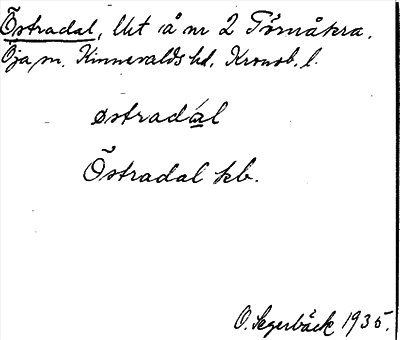 Östradal, lht å nr 2 Törnåkra,
Öja sn. Kinnevalds hd, Kronob. l.
østradal
Östradal kb.
O. Segerbäck 1935.